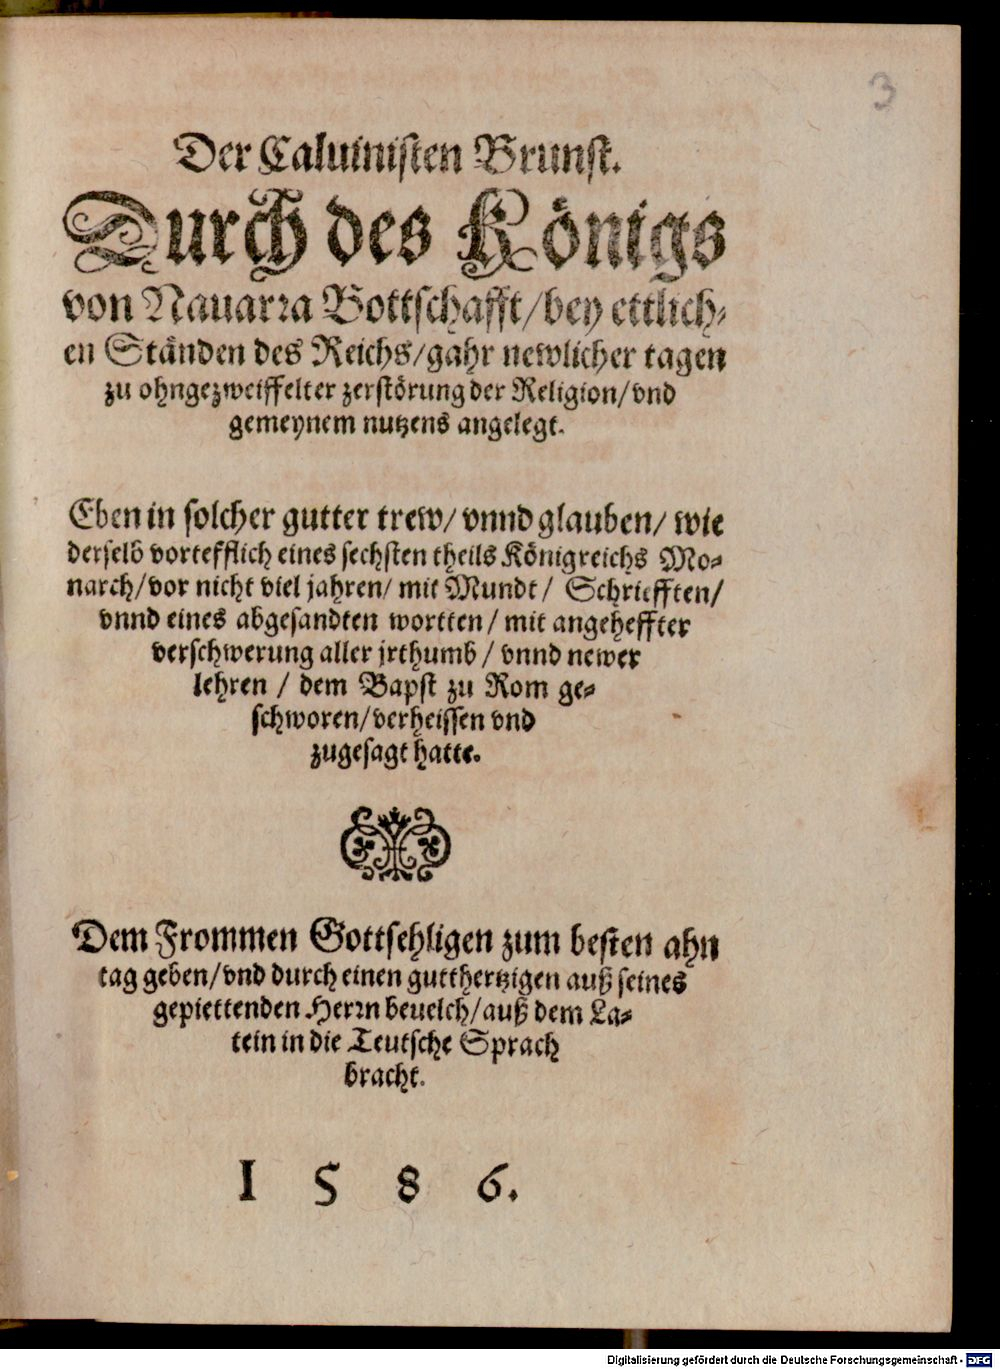 3
Der Caluinisten Brunst.
Durch des Königs
von Nauarra Bottschafft/bey ettlich-
en Ständen des Reichs/gahr newlicher tagen
zu ohngezweiffelter zerstörung der Religion/vnd
gemeynem nutzens angelegt.
Eben in solcher gutter trew/ vnnd glauben/ wie
derselb vortefflich eines sechsten theils Königreichs Mo-
narch/vor nicht viel jahren/ mit Mundt/ Schriefften/
vnnd eines abgesandten wortten/ mit angeheffter
verschwerung aller jrthumb/ vnnd newer
lehren/ dem Bapst zu Rom ge-
schworen/verheissen vnd
zugesagt hatte.
Dem Frommen Gottsehligen zum besten ahn
tag geben/vnd durch einen gutthertzigen auß seines
gepiettenden Herrn beuelch/auß dem La-
tein in die Teutsche Sprach
bracht.
1586.
Digitalisierung gefördert durch die Deutsche Forschungsgemeinschaft - DFG